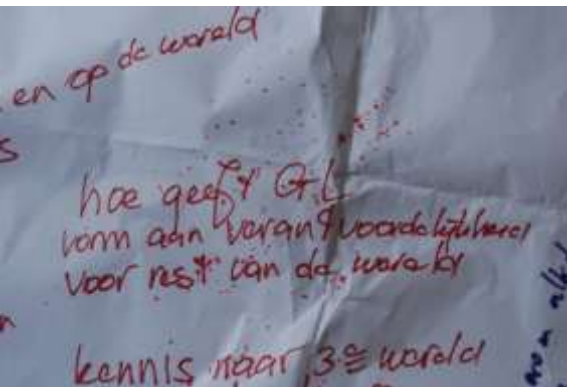 en op de wereld
s
hoe geeft GL
vorm aan verantwoordelijkheid
voor rest van de wereld
n
kennis naar 3e wereld